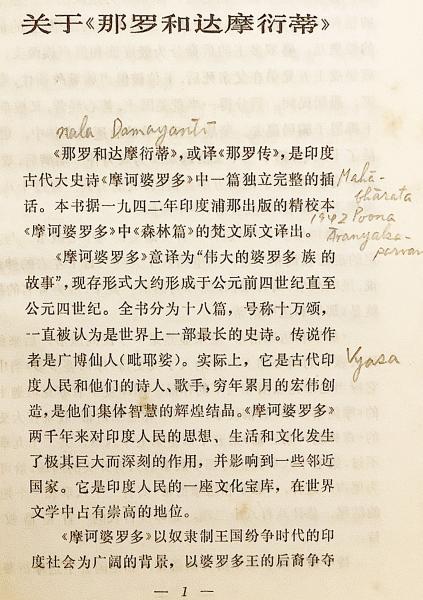 关于《那罗和达摩衍蒂》
nala Damayantī
《那罗和达摩衍蒂》，或译《那罗传》，是印度
古代大史诗《摩诃婆罗多》中一篇独立完整的插
Mahā-
话。本书据一九四二年印度浦那出版的精校本
bhārata
1942 Poona
《摩诃婆罗多》中《森林篇》的梵文原文译出。
Āraṇyaka-
parvan
《摩诃婆罗多》意译为“伟大的婆罗多 族 的
故事”，现存形式大约形成于公元前四世纪直至
公元四世纪。全书分为十八篇，号称十万颂，
一直被认为是世界上一部最长的史诗。传说作
者是广博仙人（毗耶娑）。实际上，它是古代印
Vyasa
度人民和他们的诗人、歌手，穷年累月的宏伟创
造，是他们集体智慧的辉煌结晶。《摩诃婆罗多》
两千年来对印度人民的思想、生活和文化发生
了极其巨大而深刻的作用，并影响到一些邻近
国家。它是印度人民的一座文化宝库，在世界
文学中占有崇高的地位。
《摩诃婆罗多》以奴隶制王国纷争时代的印
度社会为广阔的背景，以婆罗多王的后裔争夺
— 1 —